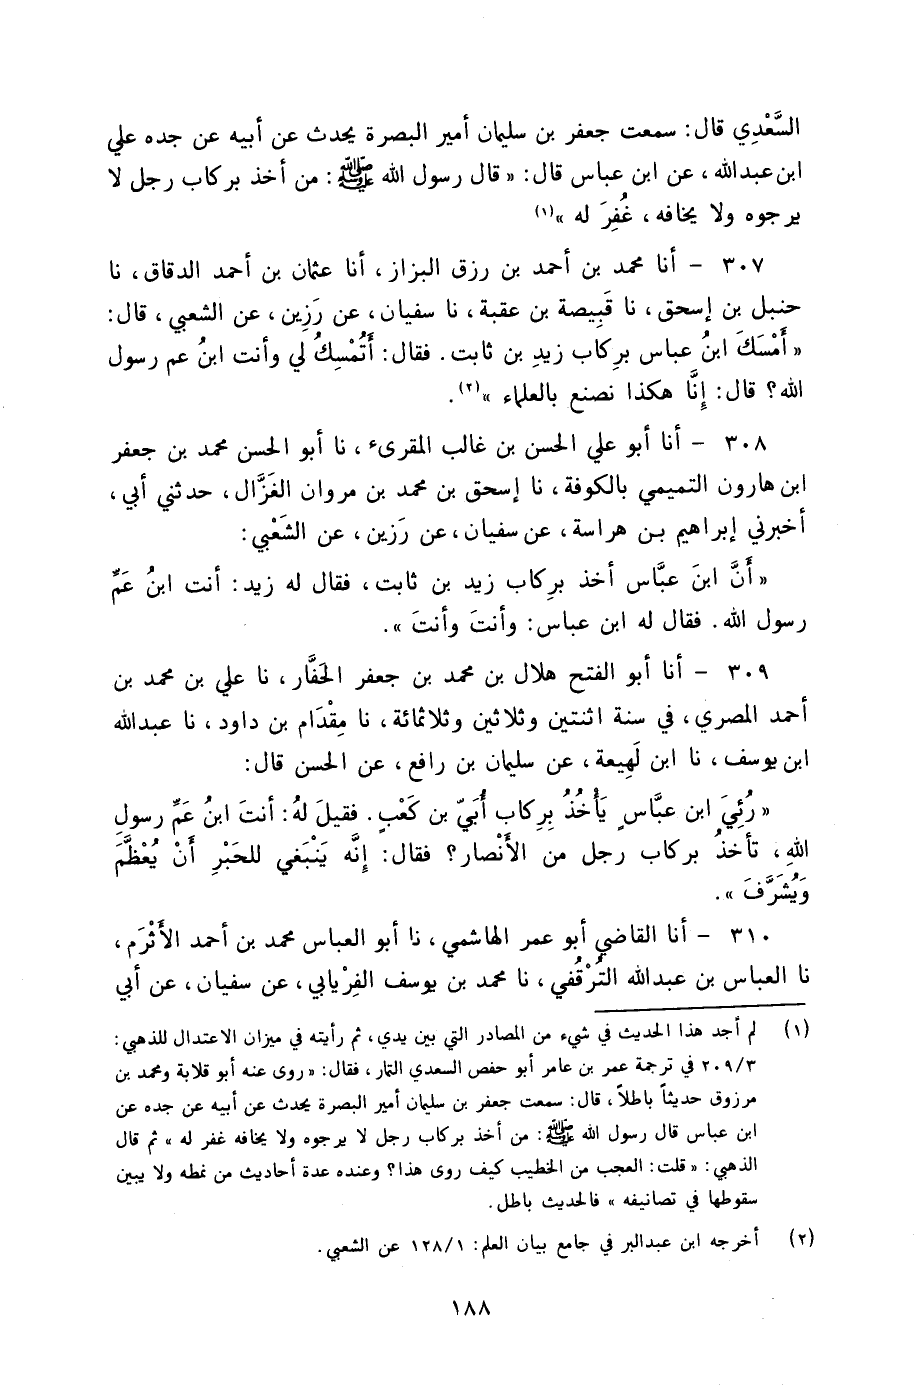 السَّعْدِي قال: سمعت جعفر بن سليمان أمير البصرة يحدث عن أبيه عن جده علي
ابن عبدالله، عن ابن عباس قال: « قال رسول الله ﷺ: من أخذ بركاب رجل لا
يرجوه ولا يخافه، غُفِرَ له »(١)
٣٠٧ - أنا محمد بن أحمد بن رزق البزاز، أنا عثمان بن أحمد الدقاق، نا
حنبل بن إسحق، نا قَبِيصة بن عقبة، نا سفيان، عن رَزِين، عن الشعبي، قال:
« أَمْسَكَ ابنُ عباس بركاب زيدِ بن ثابت. فقال: أَتُمْسِكُ لي وأنت ابنُ عم رسول
الله؟ قال: إِنَّا هكذا نصنع بالعلماء »(٢).
٣٠٨ - أنا أبو علي الحسن بن غالب المقرىء، نا أبو الحسن محمد بن جعفر
ابن هارون التميمي بالكوفة، نا إسحق بن محمد بن مروان الغَزَّال، حدثني أبي،
أخبرني إبراهيم بن هراسة، عن سفيان، عن رَزين، عن الشَعْبي:
« أَنَّ ابنَ عبَّاس أخذ بركاب زيد بن ثابت، فقال له زيد: أنت ابنُ عَمِّ
رسول الله. فقال له ابن عباس: وأنتَ وأنتَ ».
٣٠٩ - أنا أبو الفتح هلال بن محمد بن جعفر الحَفَّار، نا علي بن محمد بن
أحمد المصري، في سنة اثنتين وثلاثين وثلاثمائة، نا مِقْدَام بن داود، نا عبدالله
ابن يوسف، نا ابن لَهِيعة، عن سليمان بن رافع، عن الحسن قال:
« رُئِيَ ابن عبَّاسٍ يَأْخُذُ بِركاب أُبَيّ بن كَعْبٍ. فقيلَ لهُ: أنتَ ابنُ عَمِّ رسولِ
اللهِ، تأخذُ بركاب رجل من الأَنْصار؟ فقال: إِنَّه يَنْبَغي للحَبْرِ أَنْ يُعْظَّمَ
وَيُشَرَّفَ ».
٣١٠ - أنا القاضي أبو عمر الهاشمي، نا أبو العباس محمد بن أحمد الأَثْرَم،
نا العباس بن عبدالله التُرْقُفي، نا محمد بن يوسف الفِرْيابي، عن سفيان، عن أبي
(١) لم أجد هذا الحديث في شيء من المصادر التي بين يدي، ثم رأيته في ميزان الاعتدال للذهبي:
٢٠٩/٣ في ترجمة عمر بن عامر أبو حفص السعدي التمار، فقال: « روى عنه أبو قلابة ومحمد بن
مرزوق حديثاً باطلاً، قال: سمعت جعفر بن سليمان أمير البصرة يحدث عن أبيه عن جده عن
ابن عباس قال رسول الله ﷺ: من أخذ بركاب رجل لا يرجوه ولا يخافه غفر له » ثم قال
الذهبي: « قلت: العجب من الخطيب كيف روى هذا؟ وعنده عدة أحاديث من نمطه ولا يبين
سقوطها في تصانيفه » فالحديث باطل.
(٢) أخرجه ابن عبدالبر في جامع بيان العلم: ١٢٨/١ عن الشعبي.
١٨٨